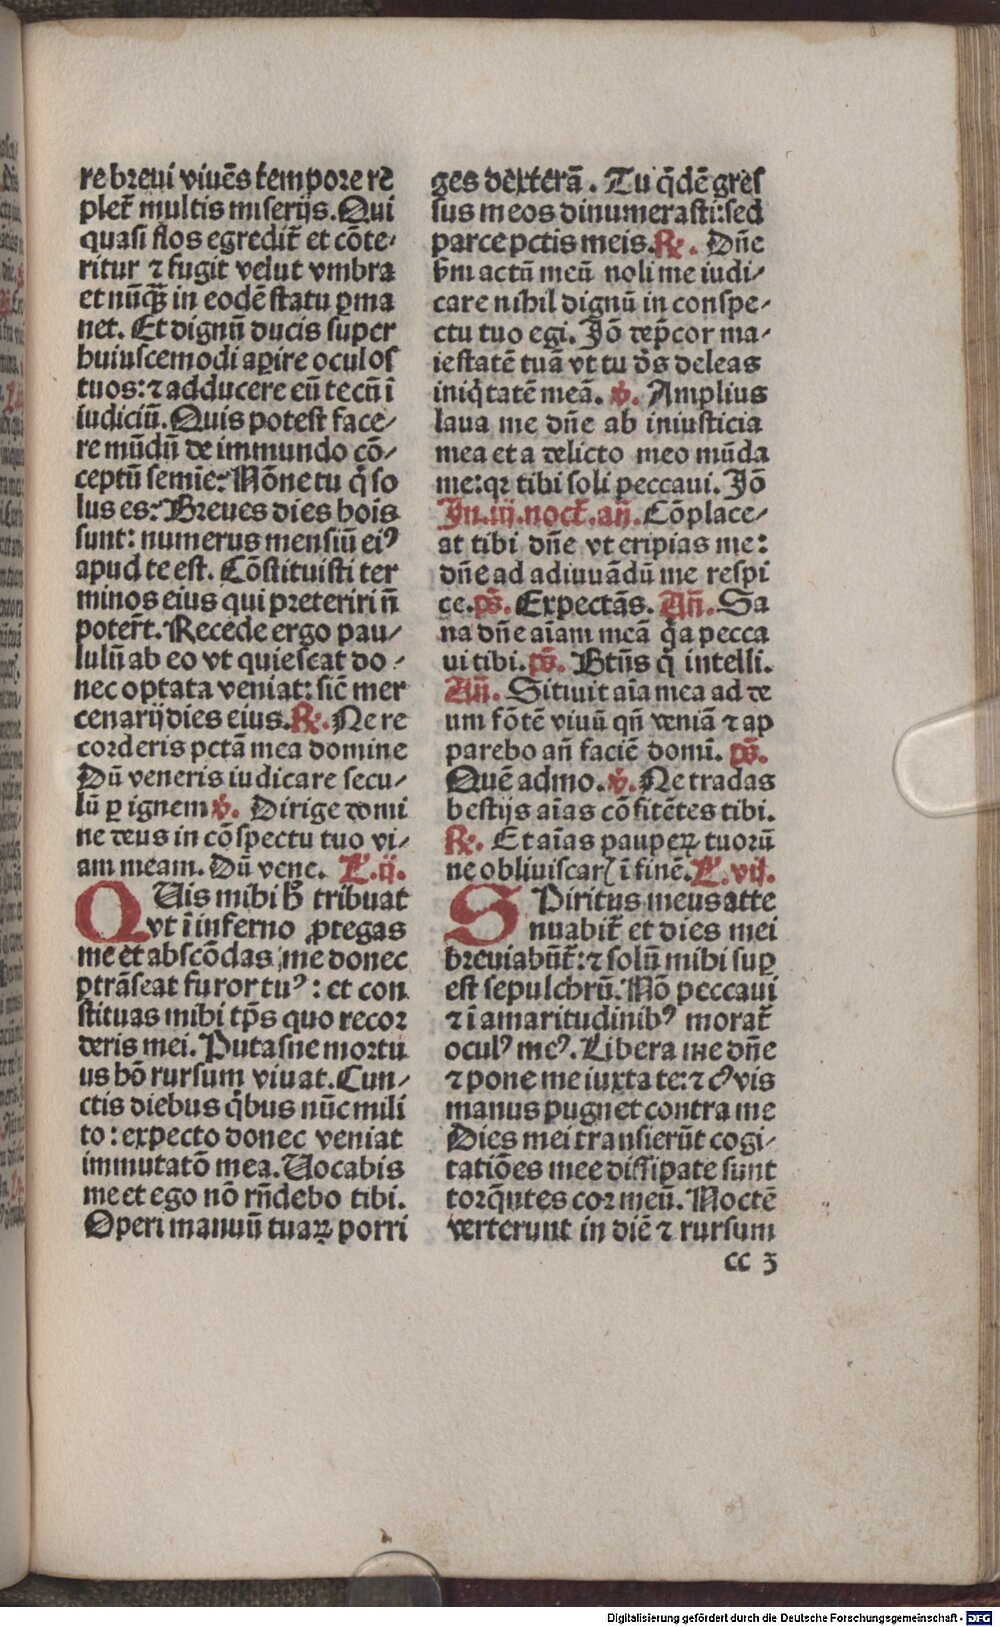 re breui viuēs tempore rē
plet̄ multis miserijs. Qui
quasi flos egredit̄ et cōte⸗
ritur ⁊ fugit velut vmbra
et nūqꝫ in eodē statu ꝑma
net. Et dignū ducis super
huiuscemodi aꝑire oculos
tuos: ⁊ adducere eū tecū ī
iudiciū. Quis potest face⸗
re mūdū de immundo cō⸗
ceptū semīe? Nōne tu q̄ so
lus es? Breues dies hois
sunt: numerus mensiū eiꝰ
apud te est. Cōstituisti ter
minos eius qui preteriri n̄
poter̄t. Recede ergo pau⸗
lulū ab eo vt quiescat do⸗
nec optata veniat: sic̄ mer
cenarij dies eius. ℟. Ne re
corderis pctā mea domine
Dū veneris iudicare secu⸗
lū ꝑ ignem ℣. Dirige domi
ne deus in cōspectu tuo vi⸗
am meam. Dū vene. L. ij.
QUis mihi h̄ tribuat
vt ī inferno ꝓtegas
me et abscōdas me donec
ꝑtrāseat furor tuꝰ: et con
stituas mihi tp̄s quo recor
deris mei. Putasne mortu
us hō rursum viuat. Cun⸗
ctis diebus q̄bus nūc mili
to: expecto donec veniat
immutatō mea. Uocabis
me et ego nō rn̄debo tibi.
Operi manuū tuaꝝ porri
ges dexterā. Tu q̄dē gres
sus meos dinumerasti: sed
parce pctis meis. ℟. Dn̄e
ẜm actū meū noli me iudi⸗
care nihil dignū in conspe⸗
ctu tuo egi. Jō dep̄cor ma⸗
iestatē tuā vt tu d̄s deleas
iniq̄tatē meā. ℣. Amplius
laua me dn̄e ab iniusticia
mea et a delicto meo mūda
me: qꝛ tibi soli peccaui. Jō
Jn. iij. noct̄. an̄. Cōplace⸗
at tibi dn̄e vt eripias me:
dn̄e ad adiuuādū me respi
ce. ps̄. Expectās. An̄. Sa
na dn̄e aīam meā q̄a pecca
ui tibi. ps̄. Btn̄s q̄ intelli.
An̄. Sitiuit aīa mea ad de
um fōtē viuū qn̄ veniā ⁊ ap
parebo an̄ faciē domī. ps̄.
Quē admo. ℣. Ne tradas
bestijs aīas cōfitētes tibi.
℟. Et aīas pauperꝝ tuorū
ne obliuiscarꝭ ī finē. L. vij.
SPiritus meus atte
nuabit̄ et dies mei
breuiabūt̄: ⁊ solū mihi suꝑ
est sepulchrū. Nō peccaui
⁊ ī amaritudinibꝰ morat̄
oculꝰ meꝰ. Libera me dn̄e
⁊ pone me iuxta te: ⁊ cꝰvis
manus pugnet contra me
Dies mei transierūt cogi⸗
tatiōes mee dissipate sunt
torq̄ntes cor meū. Noctē
verterunt in diē ⁊ rursum
cc 3
Digitalisierung gefördert durch die Deutsche Forschungsgemeinschaft - DFG